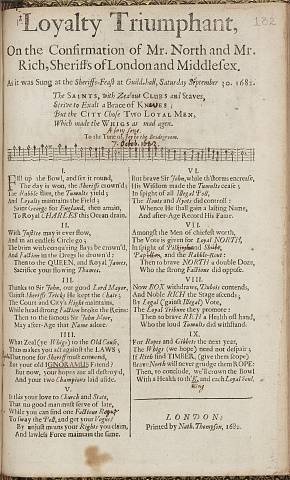 182
Loyalty Triumphant,
On the Confirmation of Mr. North and Mr.
Rich, Sheriffs of London and Middlesex.
As it was Sung at the Sheriffs-Feast at Guildhall, Saturday September 30. 1682.
The SAINTS, with Zealous CLUBS and Staves,
Strive to Exalt a Brace of KNAVES;
But the CITY Chose Two LOYAL MEN,
Which made the WHIGS as mad agen.
To the Tune of, Joy to the Bridegroom.
7. Octob. 1682.
I.
Fill up the Bowl, and set it round,
The day is won, the Sheriffs crown'd;
The Rabble flies, the Tumults yield;
And Loyalty maintains the Field;
Saint George for England, then amain,
To Royal CHARLES this Ocean drain.
II.
With Justice may it ever flow,
And in an endless Circle go;
The brim with conquering Bays be crown'd,
And Faction in the Dregs be drown'd:
Then to the QUEEN, and Royal James,
Sacrifice your flowing Thames.
III.
Thanks to Sir John, our good Lord Mayor,
'Gainst Sheriffs Tricks He kept the Chair;
The Court and City's Right maintains,
While head-strong Faction broke the Reins:
Then to the famous Sir John Moor,
May after-Age that Name adore.
IIII.
What Zeal (ye Whigs) to the Old Cause,
Thus makes you act against the LAWS;
That none for Sheriff must contend,
But your old IGNORAMUS Friend?
But now, your hopes are all destroy'd,
And your two Champions laid aside.
V.
Is this your love to Church and State,
That no good man must serve of late,
While you can find one Factious Rogue
To sway the Poll, and get your Vogue?
By unjust means your Rights you claim,
And lawless Force maintain the same.
VI.
But brave Sir John, while th' hoarse encrease,
His Wisdom made the Tumults cease;
In spight of all Illegal Poll,
The Routs and Ryots did controul:
Whence He shall gain a lasting Name,
And after-Age Record His Fame.
VII.
Amongst the Men of chiefest worth,
The Vote is given for Loyal NORTH,
In spight of Pilkington and Shute,
Papillon, and the Rabble-Rout:
Then to brave NORTH a double Doze,
Who the strong Factions did oppose.
VIII.
Now BOX withdraws, Dubois contends,
And Noble RICH the Stage ascends;
By Legal ('gainst Illegal) Vote,
The Loyal Tribune they promote:
Then to brave RICH a Health off hand,
Who the loud Tumults did withstand.
IX.
For Ropes and Gibbets the next year,
The Whigs (we hope) need not despair;
If Rich find TIMBER, (give them scope)
Brave North will never grudge them ROPE:
Then, to conclude, we'll crown the Bowl
With a Health to th' K. and each Loyal Soul.
King
LONDON:
Printed by Nath. Thompson, 1682.